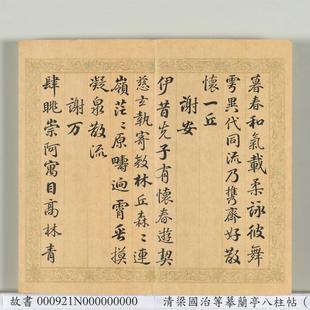 暮春和氣載柔詠彼舞
雩異代同流乃携齊好散
懷一丘
謝安
伊昔先子有懷春遊契
茲言執寄敖林丘森森連
嶺茫茫原疇迥霄垂
凝泉散流
謝万
肆眺崇阿寓目高林青
故書 000921N000000000 清梁國治等摹蘭亭八柱帖（